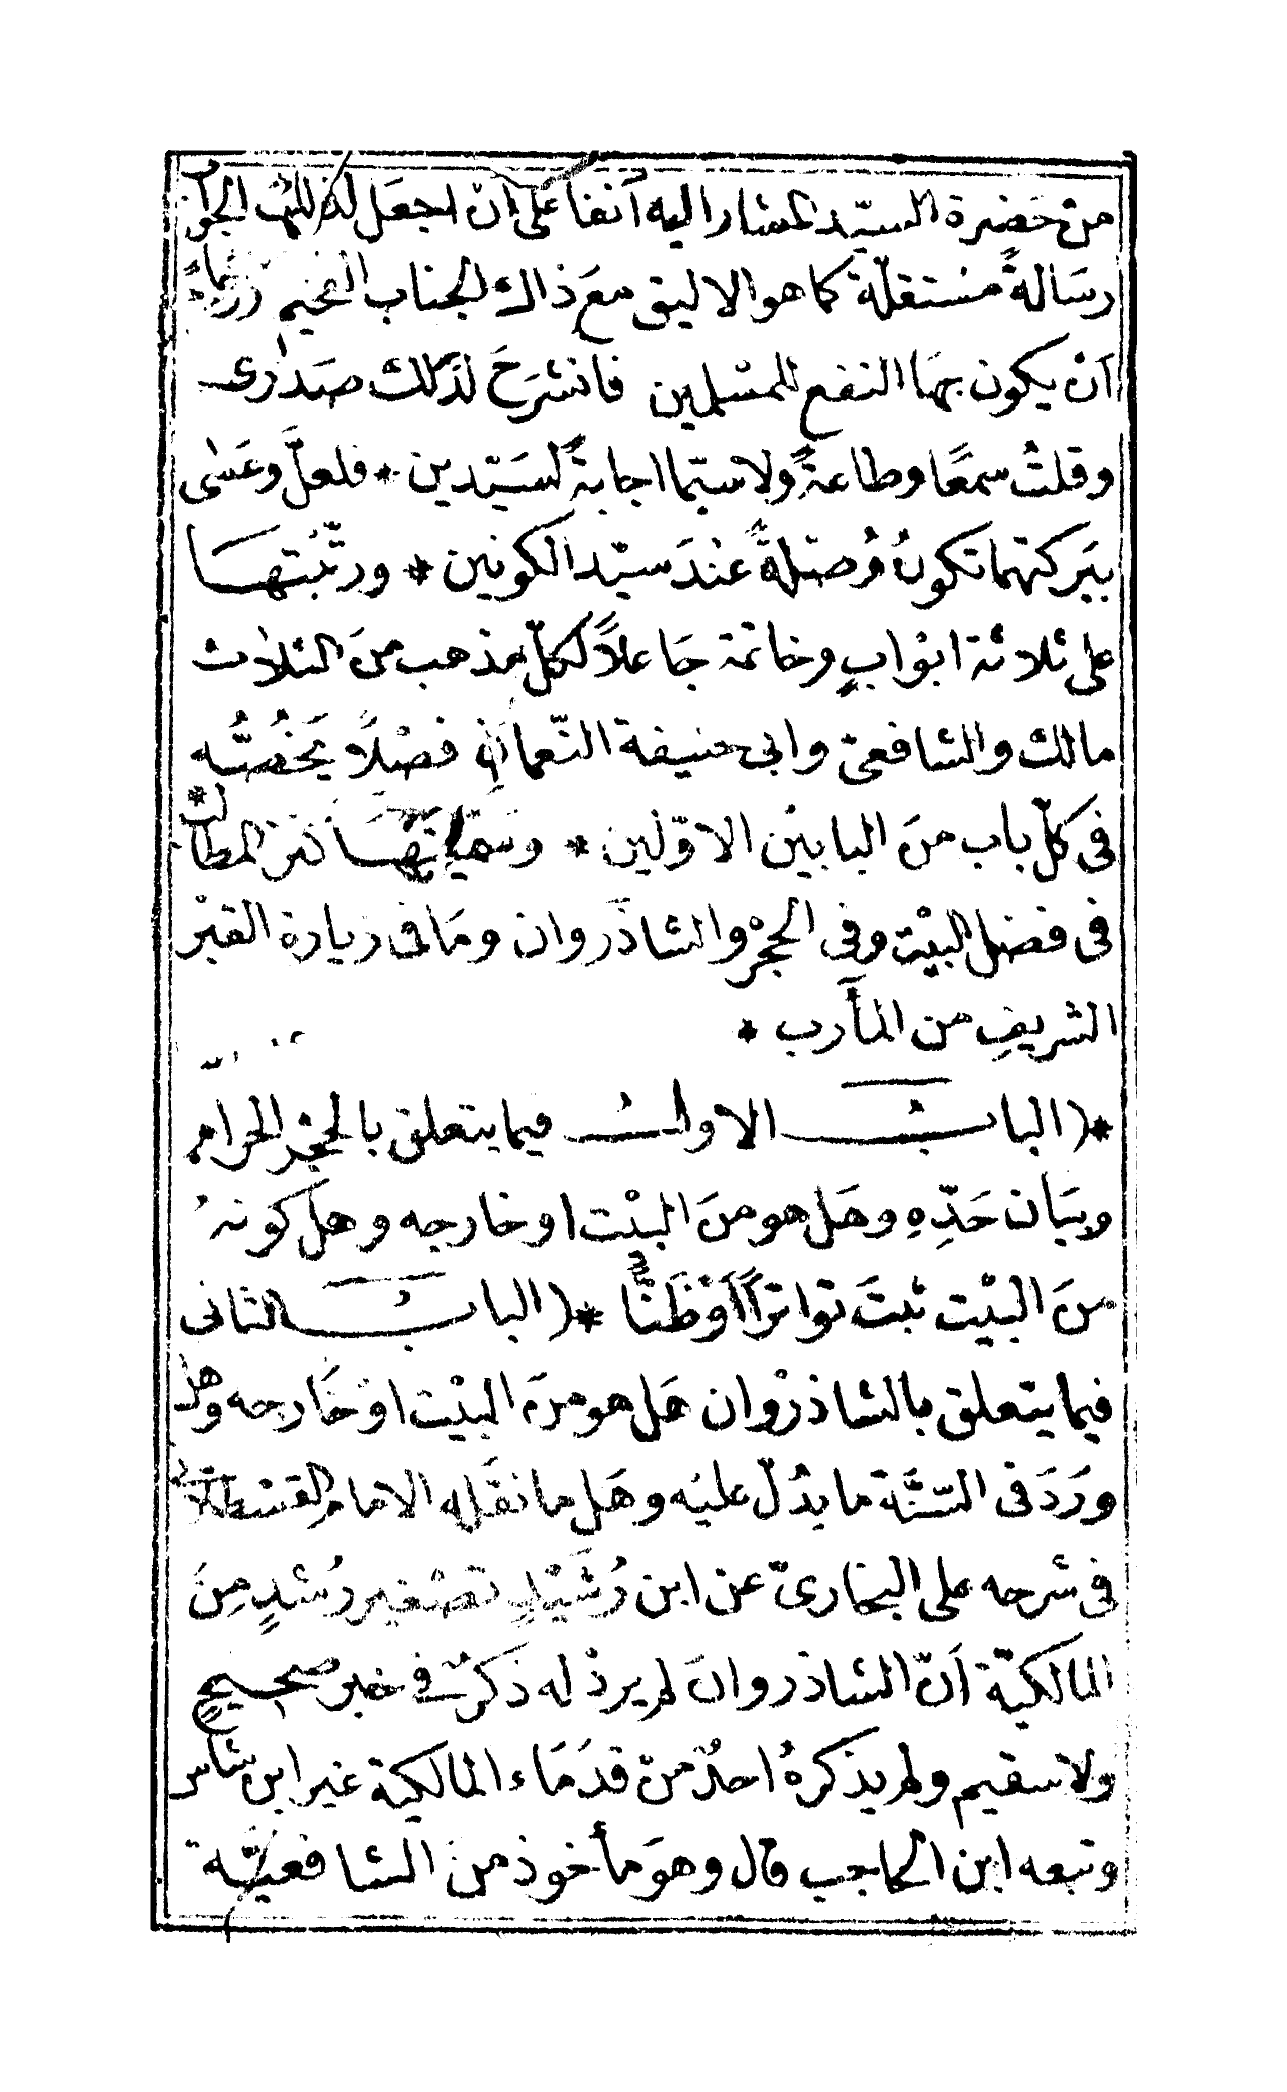 منْ حَضرة السيّد المشار اليه آنفا على انْ اجعَل لذلك الجواب
رسَالةً مُستقلّة كما هو الاليق معَ ذاك الجناب الفخيم
انْ يكون بهَا النفع للمسْلمين فانشرَحَ لذلك صَدرى
وقلتُ سمعًا وطاعةً ولاسيّما اجابةً لسَيّدين * فلعلَّ وعَسٰى
ببَركتهما تكونُ وُصْلةً عندَ سيّد الكونين * ورتّبتُهَا
على ثلاثة ابْوابٍ وخاتمة جَاعلاً لكلّ مذهب منَ الثلاث
مالك والشافعىّ وابى حنيفة النّعمان فصْلاً يَخُصُّه
فى كلّ باب منَ البابيْن الاوّلين * وسَمّيتُهَا كنز المطالب *
فى فضل البيْت وفى الحجْرِ والشاذَروان ومَا فى زيارة القبْر
الشريفِ من المآرب *
*( البابُ الاولُ فيما يتعلق بالحجْر الحرام
وبيَان حَدِّهِ وهَل هو منَ البيْت او خارجه وهل كونهُ
منَ البيْت ثبتَ تواتراً اَوْ ظَنًّا *( البابُ الثانى
فيما يتعلق بالشاذرْوان هَل هو منَ البيْت اوْ خَارجه وهل
ورَدَ فى السّنَّة ما يدُلّ عليْه وهَل ما نقَله الامام القسْطلاّنى
فى شرحه على البخارىّ عن ابن رُشَيْدٍ تصْغير رُشدٍ مِنَ
المالكيّة اَنّ الشاذروانَ لم يردْ له ذكرٌ فى خبر صحيحٍ
ولا سقيم ولم يذكرهُ احدٌ منْ قدَمَاء المالكية غير ابن شاس
وتبعه ابن الحاجب قال وهوَ مأخوذ منَ الشافعيّة